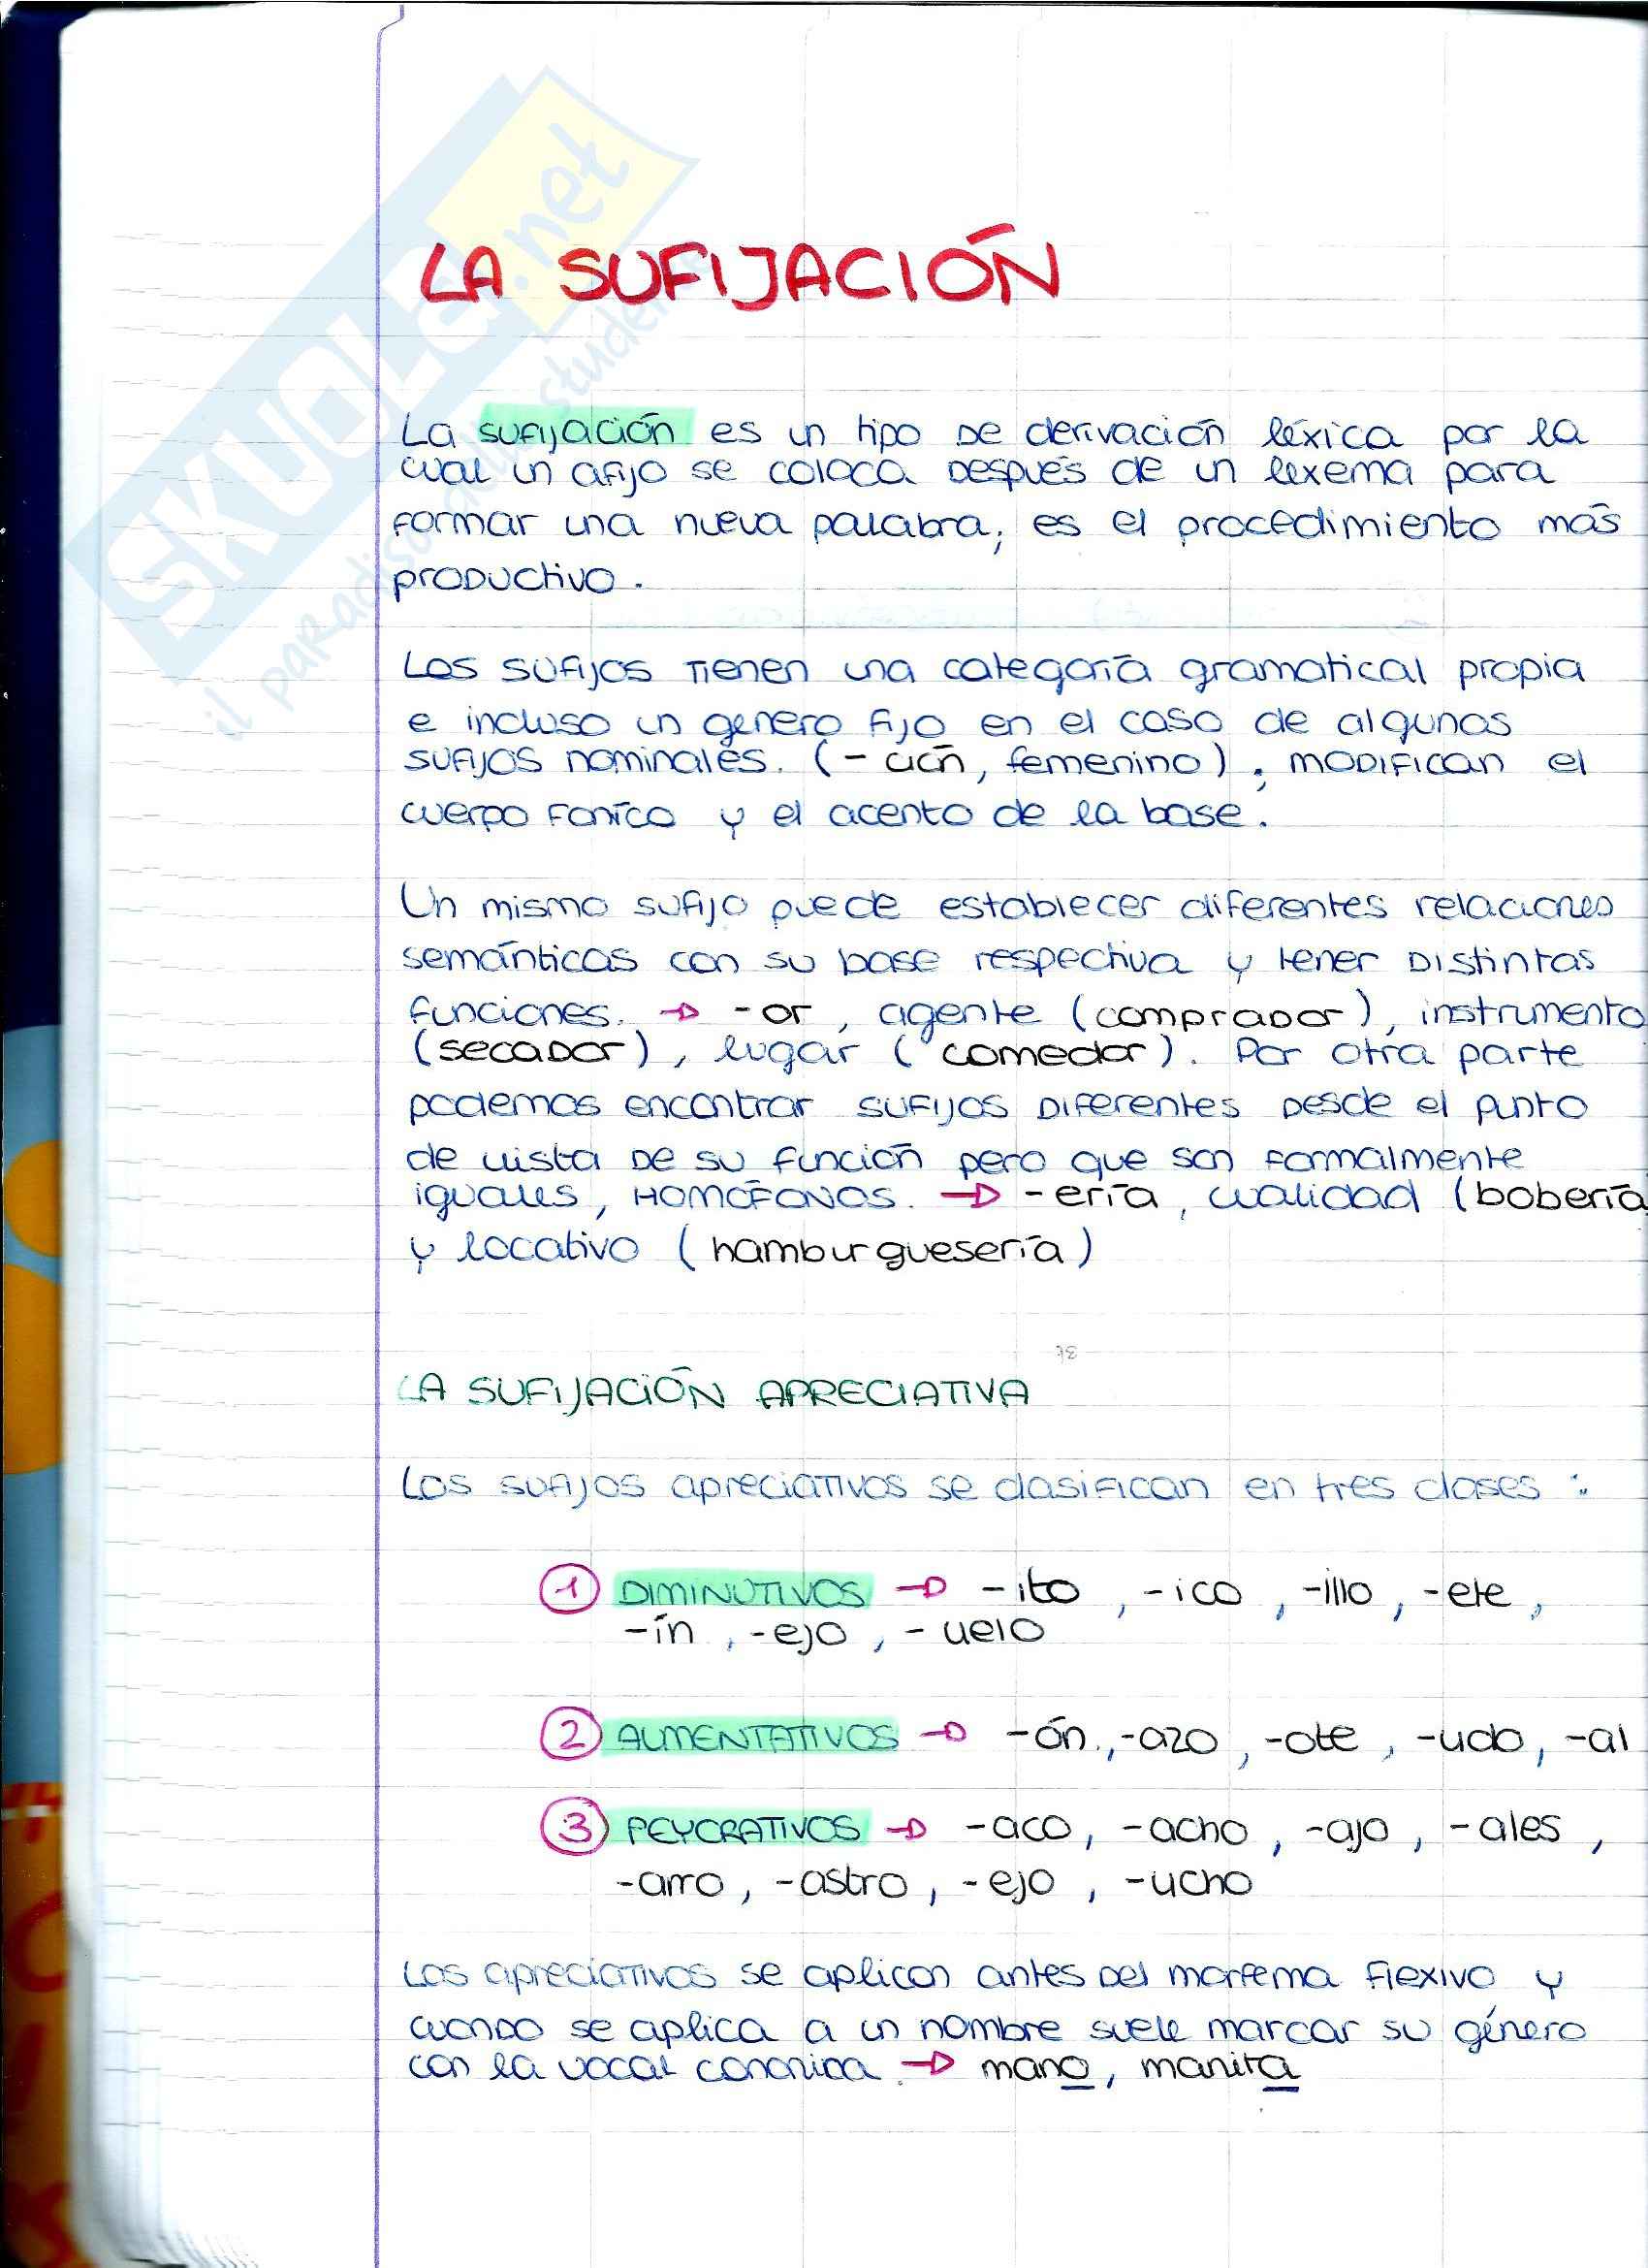 LA SUFIJACIÓN
La sufijación es un tipo de derivación léxica por la
cual un afijo se coloca después de un lexema para
formar una nueva palabra; es el procedimiento más
productivo.
Los sufijos tienen una categoría gramatical propia
e incluso un genero fijo en el caso de algunos
sufijos nominales. (-ción, femenino); modifican el
cuerpo fonico y el acento de la base.
Un mismo sufijo puede establecer diferentes relaciones
semánticas con su base respectiva y tener distintas
funciones. → -or, agente (comprador), instrumento
(secador), lugar (comedor). Por otra parte
podemos encontrar sufijos diferentes desde el punto
de vista de su función pero que son formalmente
iguales, HOMÓFONOS. → -ería, cualidad (bobería
y locativo (hamburguesería)
LA SUFIJACIÓN APRECIATIVA
Los sufijos apreciativos se clasifican en tres clases:
1 DIMINUTIVOS → -ito, -ico, -illo, -ete,
-ín, -ejo, -uelo
2 AUMENTATIVOS → -ón, -azo, -ote, -udo, -al
3 PEYORATIVOS → -aco, -acho, -ajo, -ales,
-arro, -astro, -ejo, -ucho
Los apreciativos se aplican antes del morfema flexivo y
cuando se aplica a un nombre suele marcar su género
con la vocal canonica. → mano, manita
SKUOLA.net
il paradiso dello studente